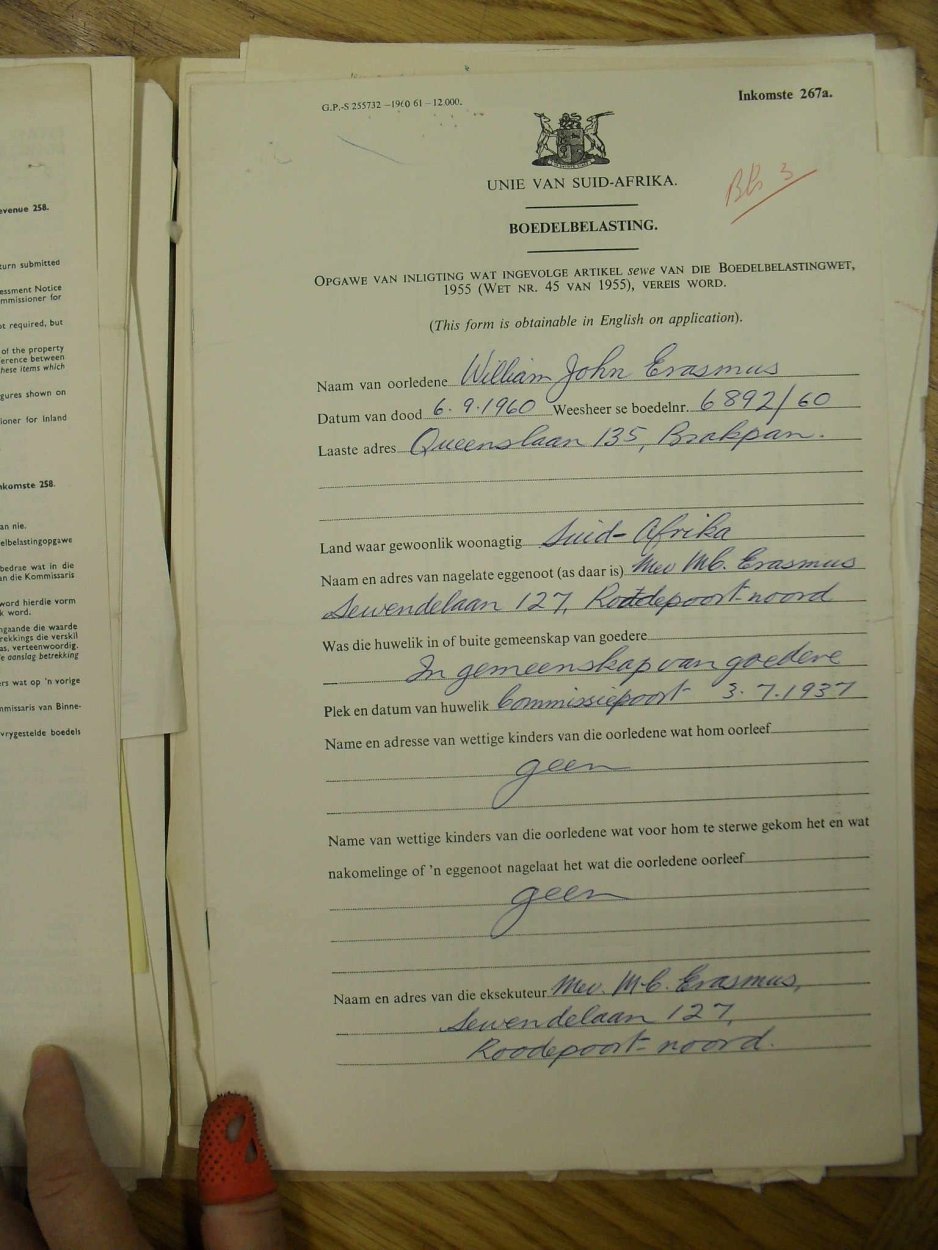 evenue 258.
turn submitted
essment Notice
mmissioner for
ot required, but
of the property
erence between
hese items which
gures shown on
ioner for Inland
nkomste 258.
an nie.
elbelastingopgawe
bedrae wat in die
an die Kommissaris
word hierdie vorm
k word.
ngaande die waarde
rekkings die verskil
as, verteenwoordig.
e aanslag betrekking
ers wat op 'n vorige
mmissaris van Binne-
vrygestelde boedels
G.P.-S 255732 –1960 61 –12.000.
Inkomste 267a.
UNIE VAN SUID-AFRIKA.
BOEDELBELASTING.
OPGAWE VAN INLIGTING WAT INGEVOLGE ARTIKEL sewe VAN DIE BOEDELBELASTINGWET,
1955 (WET NR. 45 VAN 1955), VEREIS WORD.
(This form is obtainable in English on application).
Naam van oorledene William John Erasmus
Datum van dood 6.9.1960 Weesheer se boedelnr. 6892/60
Laaste adres Queenslaan 135, Brakpan.
Land waar gewoonlik woonagtig Suid-Afrika
Naam en adres van nagelate eggenoot (as daar is) Mev M.C. Erasmus
Sewendelaan 127, Roodepoort-noord
Was die huwelik in of buite gemeenskap van goedere
In gemeenskap van goedere
Plek en datum van huwelik Commissiepoort 3.7.1937
Name en adresse van wettige kinders van die oorledene wat hom oorleef
geen
Name van wettige kinders van die oorledene wat voor hom te sterwe gekom het en wat
nakomelinge of 'n eggenoot nagelaat het wat die oorledene oorleef
geen
Naam en adres van die eksekuteur Mev. M.C. Erasmus,
Sewendelaan 127,
Roodepoort-noord.